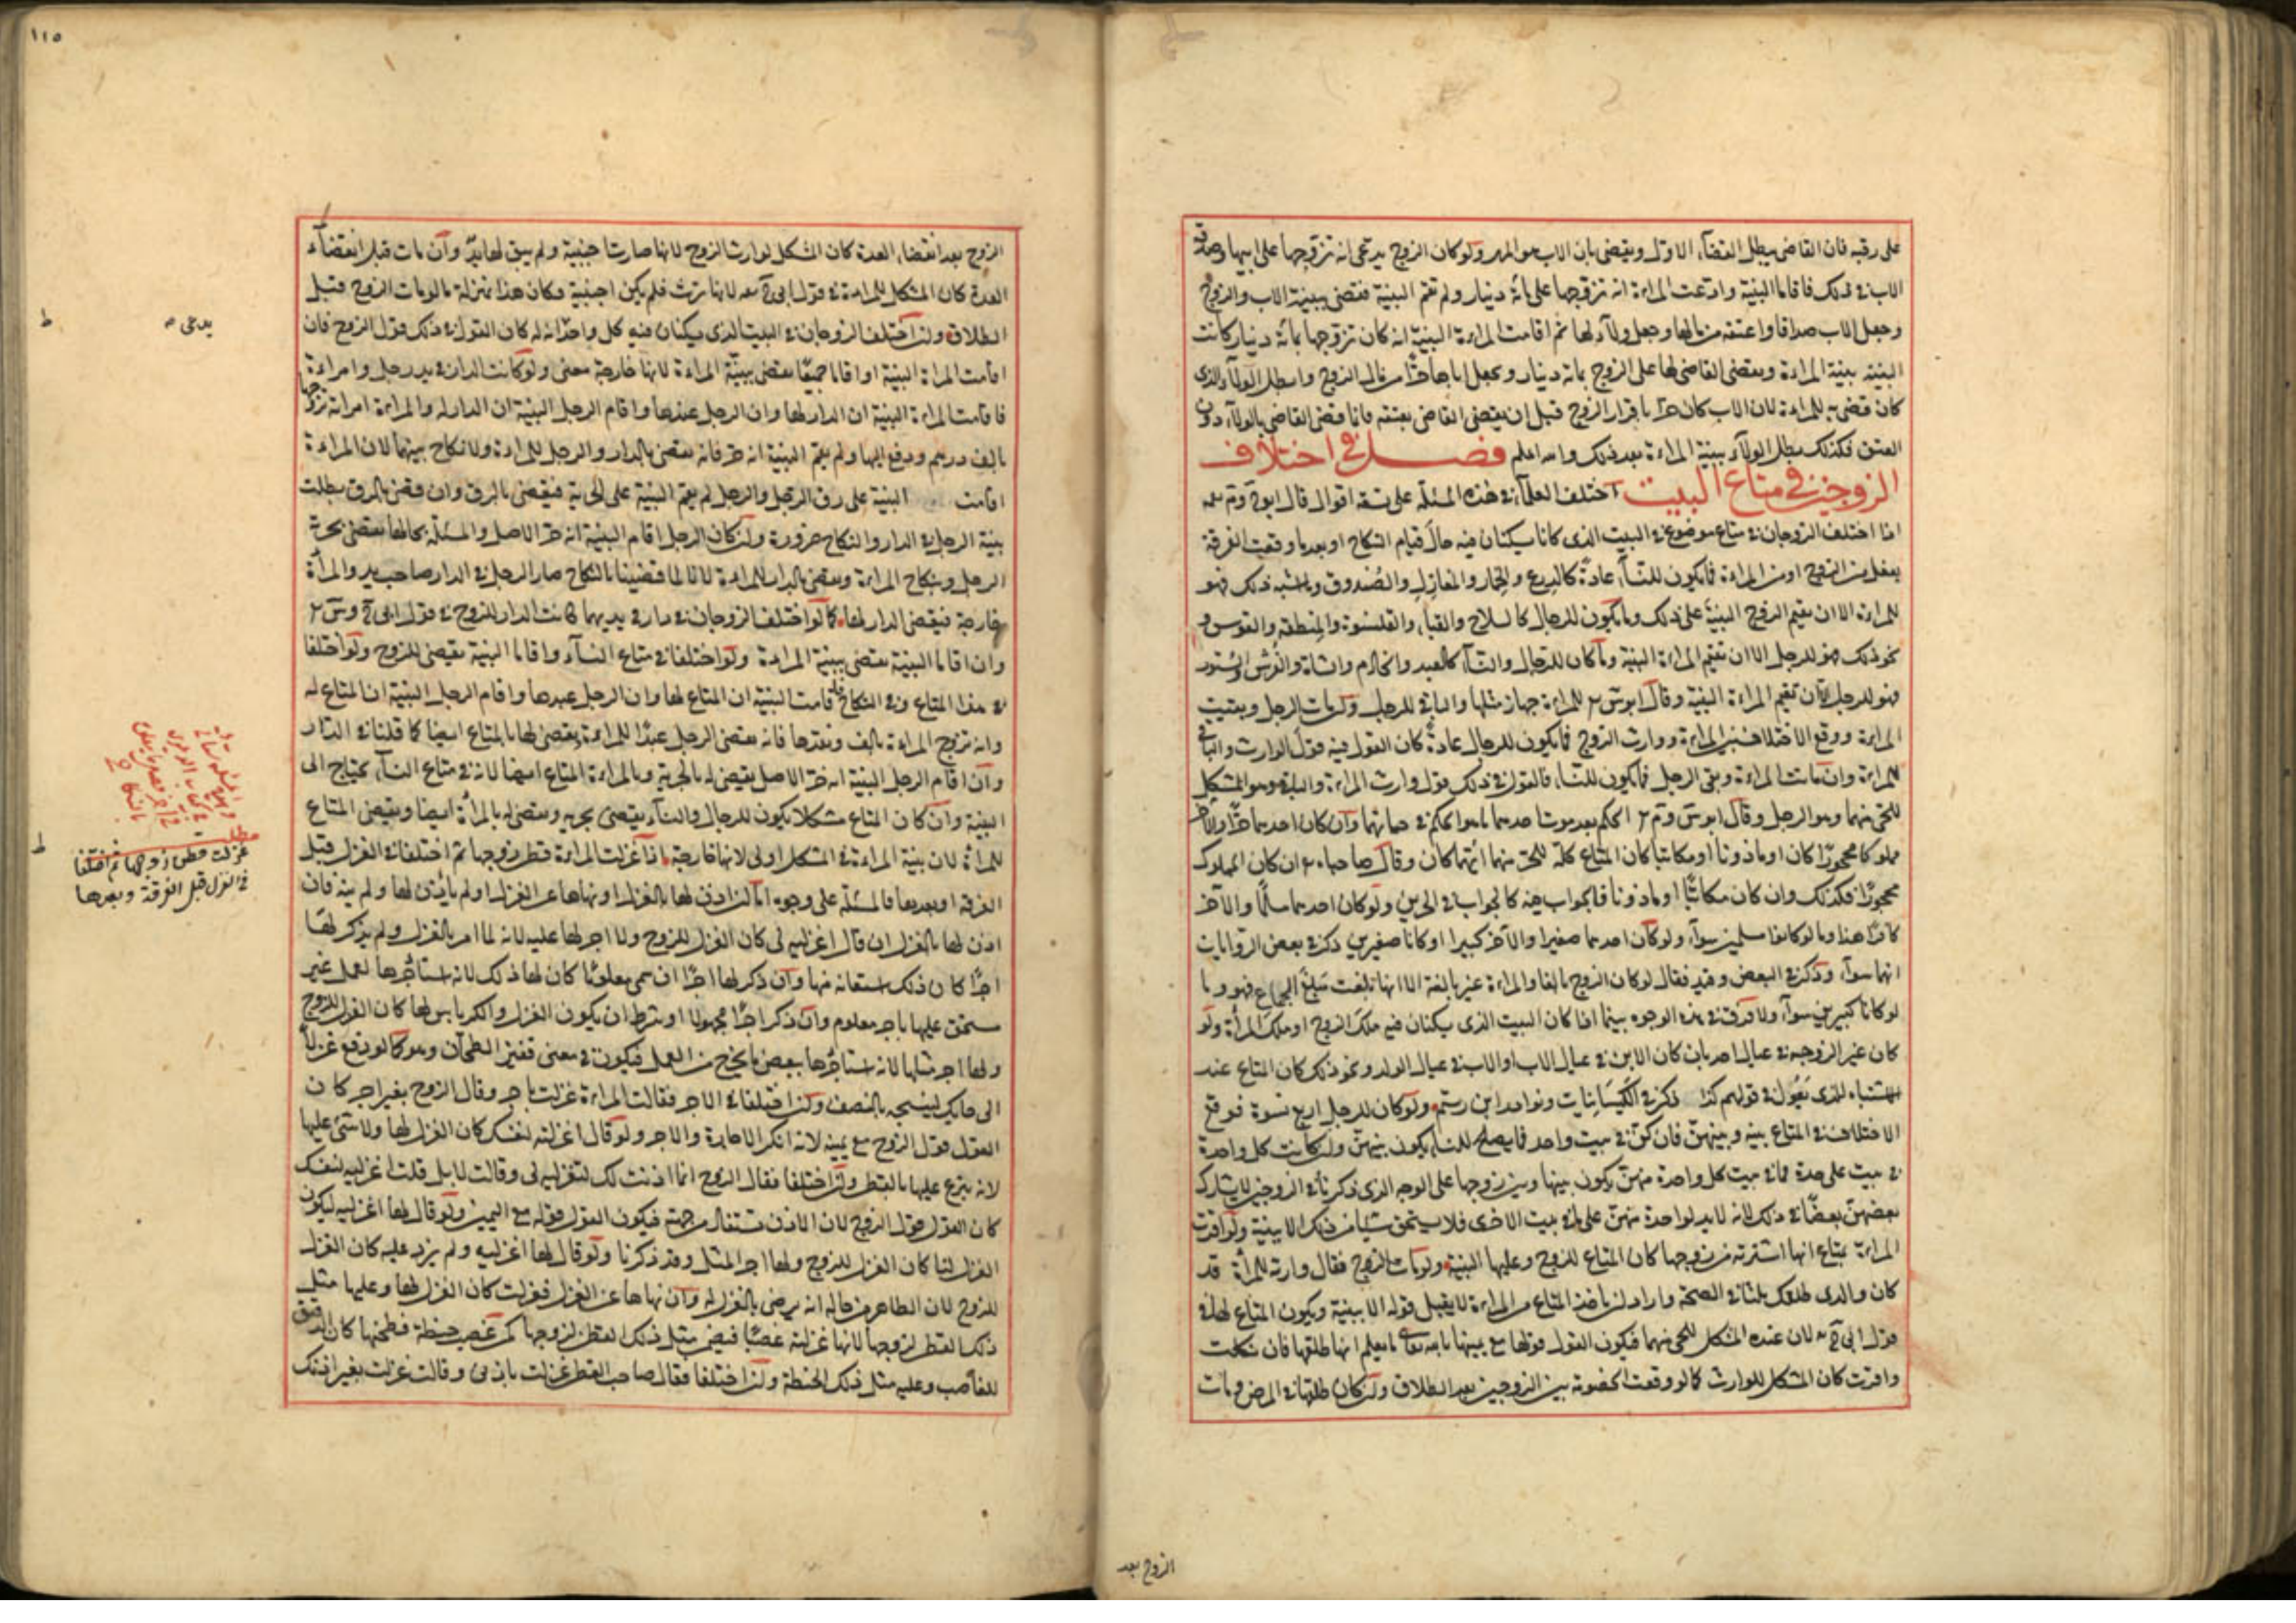 على رقبه فان القاضى يبطل القضآء الاول ويقضى بان الاب هو المهر ولو كان الزوج يدعى انه تزوجها على ابيها وصدقه
الاب فى ذلك فاقاما البنية وادعت المراءة انه تزوجها على مائة دينار ولم تقم البنية فقضى ببينة الاب والزوج
وجعل الاب صداقا واعتقه من مالها وجعل ولآءه لها ثم اقامت المراءة البنية انه كان تزوجها بمائة دينار كانت
البنية بينة المراءة ويقضى القاضى لها على الزوج بمائة دينار ويجعل اباها حرا من مال الزوج وابطل الولآء الذى
كان قضى به للمراءة لان الاب كان حرا باقرار الزوج قبل ان يقضى القاضى بعتقه فانما قضى القاضى بالولآء دون
العتق فكذلك يبطل الولآء ببينة المراءة بعد ذلك والله اعلم فصل فى اختلاف
الزوجين فى متاع البيت اختلف العلمآء فى هذه المسئلة على تسعة اقوال قال ابو ح وم رحمه
اذا اختلف الزوجان فى متاع موضوع فى البيت الذى كانا يسكنان فيه حال قيام النكاح او بعد ما وقعت الفرقة
بفعل من الزوج او من المراءة فما يكون للنسآء عادة كالدرع والخمار والمغازل والصندوق وما اشبه ذلك فهو
للمراءة الا ان يقيم الزوج البنية على ذلك وما يكون للرجال كالسلاح والقبآء والقلنسوة والمنطقة والقوس و
نحو ذلك فهو للرجل الا ان تقيم المراءة البنية وما كان للرجال والنسآء كالعبد والخادم والشاة والفرش والستور
فهو للرجل الا ان تقيم المراءة البنية وقال ابو س للمراءة جهاز مثلها والباقى للرجل ولو مات الرجل وبقيت
المراءة ووقع الاختلاف بين المراءة ووارث الزوج فما يكون للرجال عادة كان القول فيه قول الوارث والباقى
للمراءة وان ماتت المراءة وبقى الرجل فما يكون للنسآء فالقول فى ذلك قول وارث المراءة والباقى وهو المشكل
للحى منهما وهو الرجل وقال ابو س وم الحكم بعد موت احدهما ما هو الحكم فى حياتهما وان كان احدهما حرا والآخر
مملوكا محجورا كان او ماذونا او مكاتبا كان المتاع كله للحر منهما ايهما كان وقال صاحباه ان كان المملوك
محجورا فكذلك وان كان مكاتبا او ماذونا فالجواب فيه كالجواب فى الحرين ولو كان احدهما مسلما والآخر
كافرا هذا وما لو كانوا مسلمين سوآء ولو كان احدهما صغيرا والآخر كبيرا او كانا صغيرين ذكر فى بعض الروايات
انهما سوآء وذكر فى البعض وقيد فقال لو كان الزوج بالغا والمراءة غير بالغة الا انها بلغت مبلغ الجماع فهو وما
لو كانا كبيرين سوآء ولا فرق فى هذه الوجوه بينما اذا كان البيت الذى يسكنان فيه ملك الزوج او ملك المرأة ولو
كان غير الزوجة فى عيال احد بان كان الابن فى عيال الاب او الاب فى عيال الولد ونحو ذلك كان المتاع عند
الاشتباه للذى يعول فى قولهم كذا ذكر فى الكيسانيات ونوادر ابن رستم ولو كان للرجل اربع نسوة فوقع
الاختلاف فى المتاع بينه وبينهن فان كن فى بيت واحد فما يصلح للنسآء يكون بينهن وان كانت كل واحدة
فى بيت على حدة فما فى بيت كل واحدة منهن يكون بينها وبين زوجها على الوجه الذى ذكرنا فى الزوجين لا يشارك
بعضهن بعضا فى ذلك لانه لا يد لواحدة منهن على ما فى بيت الاخرى فلا يستحق شيئا من ذلك الا ببينة ولو اقرت
المراءة بمتاع انها اشترته من زوجها كان المتاع للزوج وعليها البنية ولو مات الزوج فقال وارثه للمرأة قد
كان والدى طلقك ثلثا فى الصحة واراد ان ياخذ المتاع من المراءة لا يقبل قوله الا ببنية ويكون المتاع لها فى
قول ابى ح لان عنده المشكل للحى منهما فيكون القول قولها مع يمينها بالله تعالى ما يعلم انها طلقها فان نكلت
واقرت كان المشكل للوارث كما لو وقعت الخصومة بين الزوجين بعد الطلاق وان كان طلقها فى المرض ومات
الزوج بعد
١١٥
الزوج بعد انقضاء العدة كان المشكل لوارث الزوج لانها صارت اجنبية ولم يبق لها يد وان مات قبل انقضآء
العدة كان المشكل للمراءة فى قول ابى ح رحمه لانها ترث فلم يكن اجنبية فكان هذا بمنزلة ما لو مات الزوج قبل
الطلاق ولو اختلف الزوجان فى البيت الذى يسكنان فيه كل واحد انه له كان القول فى ذلك قول الزوج فان
يدعى
اقامت المراة البنية او اقاما جميعا يقضى ببينة المراءة لانها خارجة معنى ولو كانت الدار فى يد رجل وامراءة
فاقامت المراءة البنية ان الدار لها وان الرجل عبدها واقام الرجل البنية ان الدار له والمراءة امراته تزوجها
بالف درهم ودفع اليها ولم يقم البنية انه حر فانه يقضى بالدار والرجل للمراءة ولا نكاح بينهما لان المراءة
اقامت البنية على رق الرجل والرجل لم يقم البنية على الحرية فيقضى بالرق وان قضى بالرق بطلت
بينة الرجل فى الدار والنكاح ضرورة وان كان الرجل اقام البنية انه حر الاصل والمسئلة بحالها يقضى بحرية
الرجل وبنكاح المراءة ويقضى بالدار للمراءة لانا لما قضينا بالنكاح صار الرجل فى الدار صاحب يد والمرأة
خارجة فيقضى الدار لها كما لو اختلف الزوجان فى دار فى يديهما كانت الدار للزوج فى قول ابى ح وس
وان اقاما البنية يقضى ببينة المراءة ولو اختلفا فى متاع النسآء واقاما البنية يقضى للزوج ولو اختلفا
فى هذا المتاع وفى النكاح فاقامت البنية ان المتاع لها وان الرجل عبدها واقام الرجل البنية ان المتاع له
وانه تزوج المراءة بالف ونقدها فانه يقضى الرجل عبدا للمراءة ويقضى لها بالمتاع ايضا كما قلنا فى الدار
وان اقام الرجل البنية انه حر الاصل يقضى له بالحرية وبالمراءة والمتاع ايضا لانه فى متاع النسآء يحتاج الى
البنية وان كان المتاع مشكلا يكون للرجال والنسآء يقضى بحريته ويقضى له بالمرأة ايضا ويقضى المتاع
للمرأة لان بينة المراءة فى المشكل اولى لانها خارجة اذا غزلت المراءة قطن زوجها ثم اختلفا فى الغزل قبل
غزلت قطن زوجها ثم اختلفا
فى الغزل قبل الفرقة وبعدها
الفرقة او بعدها فالمسئلة على وجوه اما ان اذن لها بالغزل او نهاها عن الغزل او لم يأذن لها ولم ينه فان
اذن لها بالغزل ان قال اغزليه لى كان الغزل للزوج ولا اجر لها عليه لانه لما امر بالغزل ولم يذكر لها
اجرا كان ذلك استعانة منها وان ذكر لها اجرا ان سمى معلوما كان لها ذلك لانه استأجرها لعمل غير
مستحق عليها باجر معلوم وان ذكر اجرا مجهولا او شرط ان يكون الغزل والكرباس لهما كان الغزل للزوج
ولها اجر مثلها لانه استأجرها ببعض ما يخرج من العمل فيكون فى معنى قفيز الطحان وهو كما لو دفع غزلا
الى حايك لينسجه بالنصف ولو اختلفا فى الاجر فقالت المراءة غزلت باجر وقال الزوج بغير اجر كان
القول قول الزوج مع يمينه لانه انكر الاجارة والاجر ولو قال اغزليه لنفسك كان الغزل لها ولا شئ عليها
لانه تبرع عليها بالقطن ولو اختلفا فقال الزوج انما اذنت لك لتغزليه لى وقالت لا بل قلت اغزليه لنفسك
كان القول قول الزوج لان الاذن يستفاد من جهته فيكون القول قوله مع اليمين ولو قال لها اغزليه ليكون
الغزل لنا كان الغزل للزوج ولها اجر المثل وقد ذكرنا ولو قال لها اغزليه ولم يزد عليه كان الغزل
للزوج لان الظاهر من حاله انه يرضى بالغزل له وان نهاها عن الغزل فغزلت كان الغزل لها وعليها مثل
ذلك القطن لزوجها لانها غزلته غصبا فيضمن مثل ذلك القطن لزوجها كمن غصب حنطة فطحنها كان الدقيق
للغاصب وعليه مثل ذلك الحنطة ولو اختلفا فقال صاحب القطن غزلت باذنى وقالت غزلت بغير اذنك